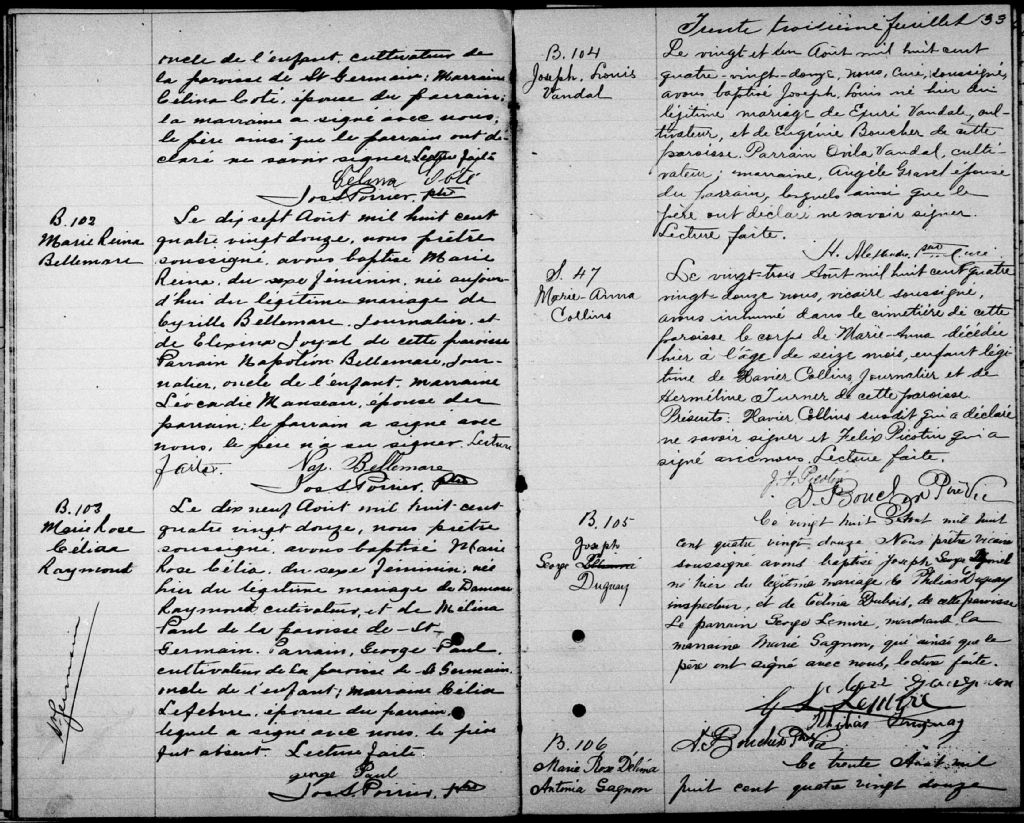 oncle de l'enfant, cultivateur de
la paroisse de St Germain; Marraine
Célina Coté, épouse du parrain;
la marraine a signé avec nous;
le père ainsi que le parrain ont dé-
claré ne savoir signer. Lecture faite
Celina Côté
Jos S Poirier, ptre
B. 102
Marie Reina
Bellemare
Le dix sept Août mil huit cent
quatre vingt douze, nous prêtre
soussigné, avons baptisé Marie
Reina, du sexe féminin, née aujour-
d'hui du légitime mariage de
Cyrille Bellemare, Journalier, et
de Elexina Joyal de cette paroisse
Parrain Napoléon Bellemare, Jour-
nalier, oncle de l'enfant, marraine
Léocadie Manseau, épouse du
parrain; le parrain a signé avec
nous, le père n'a su signer. Lecture
faite.
Nap. Bellemare
Jos S. Poirier, ptre
B. 103
Marie Rose
Célia
Raymond
St Germain
Le dix neuf Août mil huit cent
quatre vingt douze, nous prêtre
soussigné, avons baptisé Marie
Rose Célia, du sexe féminin, née
hier du légitime mariage de Damase
Raymond cultivateur, et de Mélina
Paul de la paroisse de St
Germain. Parrain, George Paul,
cultivateur de la paroisse de St Germain
oncle de l'enfant; marraine Célia
Lefebvre, épouse du parrain,
lequel a signé avec nous, le père
fut absent. Lecture faite.
george Paul
Jos S. Poirier, ptre
Trente troisième feuillet 33
B. 104
Joseph, Louis
Vandal
Le vingt et un Août mil huit cent
quatre-vingt-douze, nous, curé, soussigné,
avons baptisé Joseph, Louis né hier du
légitime mariage de Vandale, cul-
tivateur, et de Eugénie Boucher de cette
paroisse. Parrain Ovila Vandal, culti-
vateur; marraine, Angèle Gravel épouse
du parrain, lesquels ainsi que le
père ont déclaré ne savoir signer.
Lecture faite.
H. Alexandre, Ptre Curé
S. 47
Marie-Anna
Collins
Le vingt-trois Août mil huit cent quatre
vingt-douze nous, vicaire soussigné,
avons inhumé dans le cimetière de cette
paroisse le corps de Marie-Anna décédée
hier à l'âge de seize mois, enfant légi-
time de Xavier Collins, Journalier et de
Herméline Turner de cette paroisse
Présents: Xavier Collins susdit qui a déclaré
ne savoir signer et Felix Picotin qui a
signé avec nous. Lecture faite.
J. F. Picotin
Boucher Ptre Vic
B. 105
Joseph
George
Duguay
Ce vingt huit Août mil huit
cent quatre vingt douze Nous prêtre vicaire
soussigné avons baptisé Joseph George
né hier du légitime mariage de Philias Duguay
inspecteur, et de Célina Dubois, de cette paroisse
Le parrain George Lemire, marchand la
marraine Marie Gagnon, qui ainsi que le
père ont signé avec nous, lecture faite.
Gagnon
Lemire
Philias Duguay
Boucher Ptre
B. 106
Marie Rose Délima
Antonia Gagnon
Ce trente Août mil
huit cent quatre vingt douze